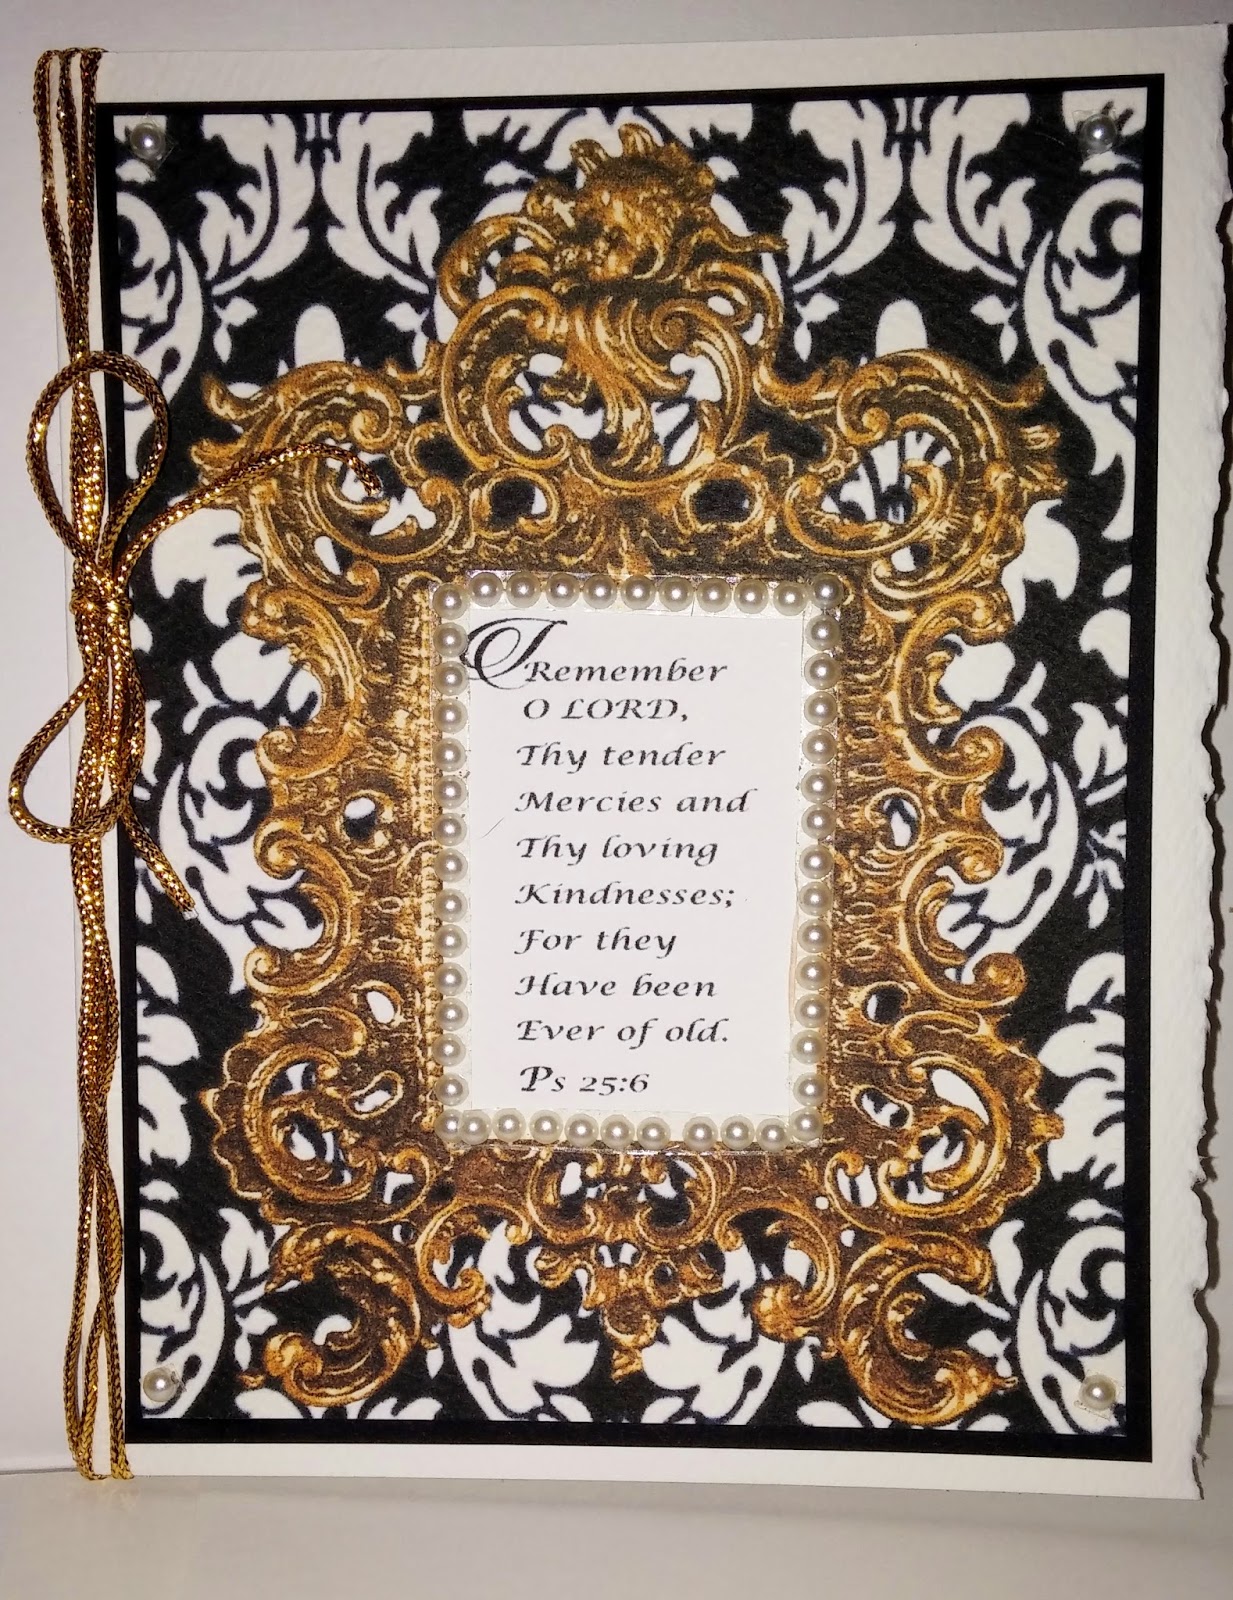 Remember
O LORD,
Thy tender
Mercies and
Thy loving
Kindnesses;
For they
Have been
Ever of old.
Ps 25:6